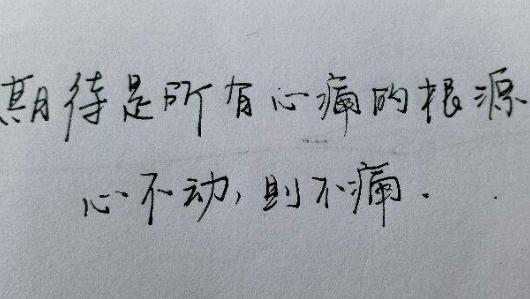 期待是所有心痛的根源
心不动，则不痛.